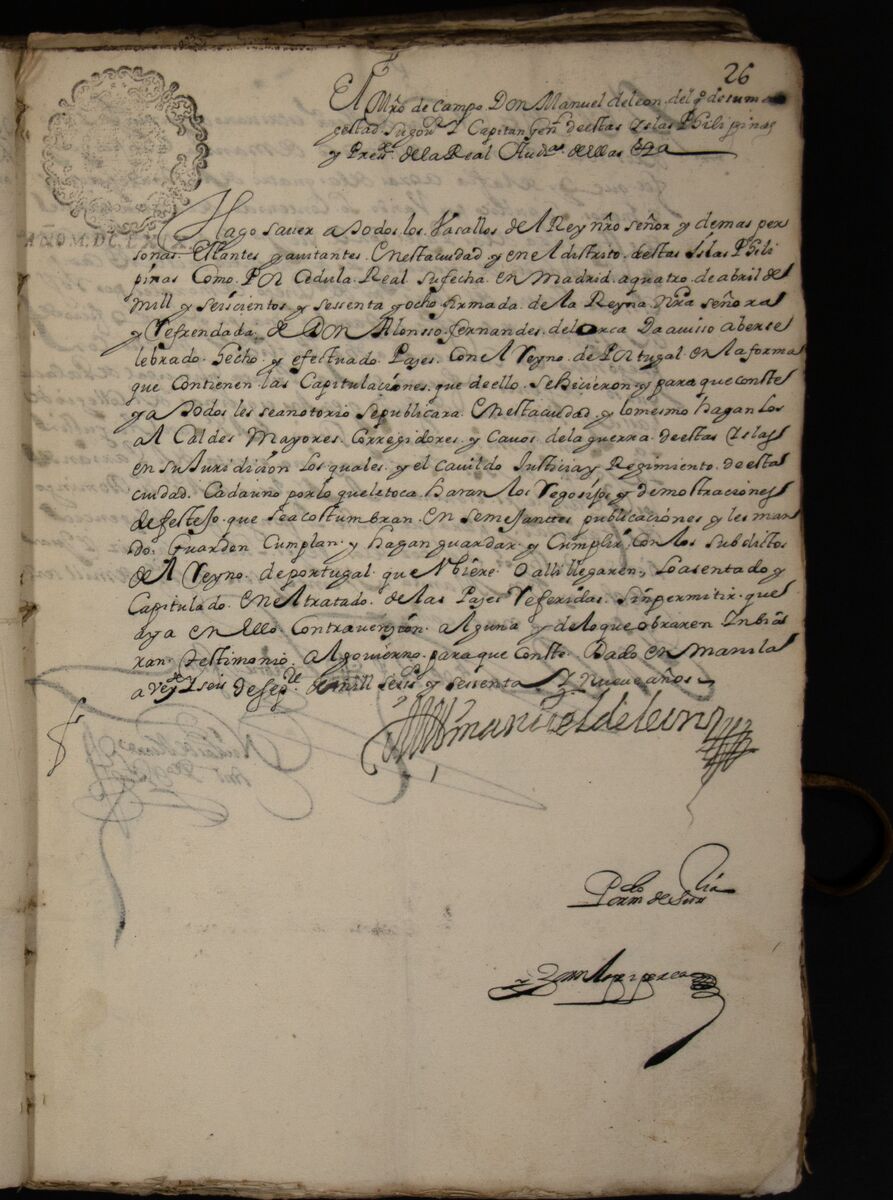 26
El Mro de Campo Don Manuel de leon del qo de su ma
gestad Su govor Y Capitan Genl de estas Yslas Philipinas
y Presite de la Real Auda de ellas &a
AÑO M.DC.LX
Hago saver a todos los Vasallos del Rey nro señor y demas per
sonas Estantes y avitantes En esta ciudad y en el distrito destas Yslas Phili
pinas Como Por Cedula Real su fecha en Madrid a quatro de abril de
mill y seiscientos y sessenta y ocho firmada de la Reyna Nra señora
y Refrendada de Don Alonsso fernandes de lorca Da auiso aberse
lebrado hecho y efectuado Pases Con el Reyno de Portugal en la forma
que Contienen las Capitulaciones que de ello Se hicieron y para que conste
y a todos les sea notorio Se publicara En esta ciudad y lo mesmo hagan los
al Caldes Mayores Corregidores y Cauos de la guerra de estas Yslas
en su Juridicion Los quales y el cauildo Justicia y Regimiento de esta
ciudad Cada uno por lo que le toca haran los Regosijos y demostraciones
de festejo que se acostumbran En semejantes publicaciones y les man
do Guarden Cumplan y hagan guardar y Cumplir Con los subditos
del Reyno de portugal que Ubiere O alli llegaren Lo asentado y
Capitulado En el tratado de las Pases Referidas Sin permitir que
aya en ello Contravencion alguna y de lo que obraren Inbia
ran testimonio al govierno para que Conste Dado en Manila
a veyte Y seis de sepe de mill seiscos y sessenta Y nueue años
Dn manuel de leon
Por mdo de su sria